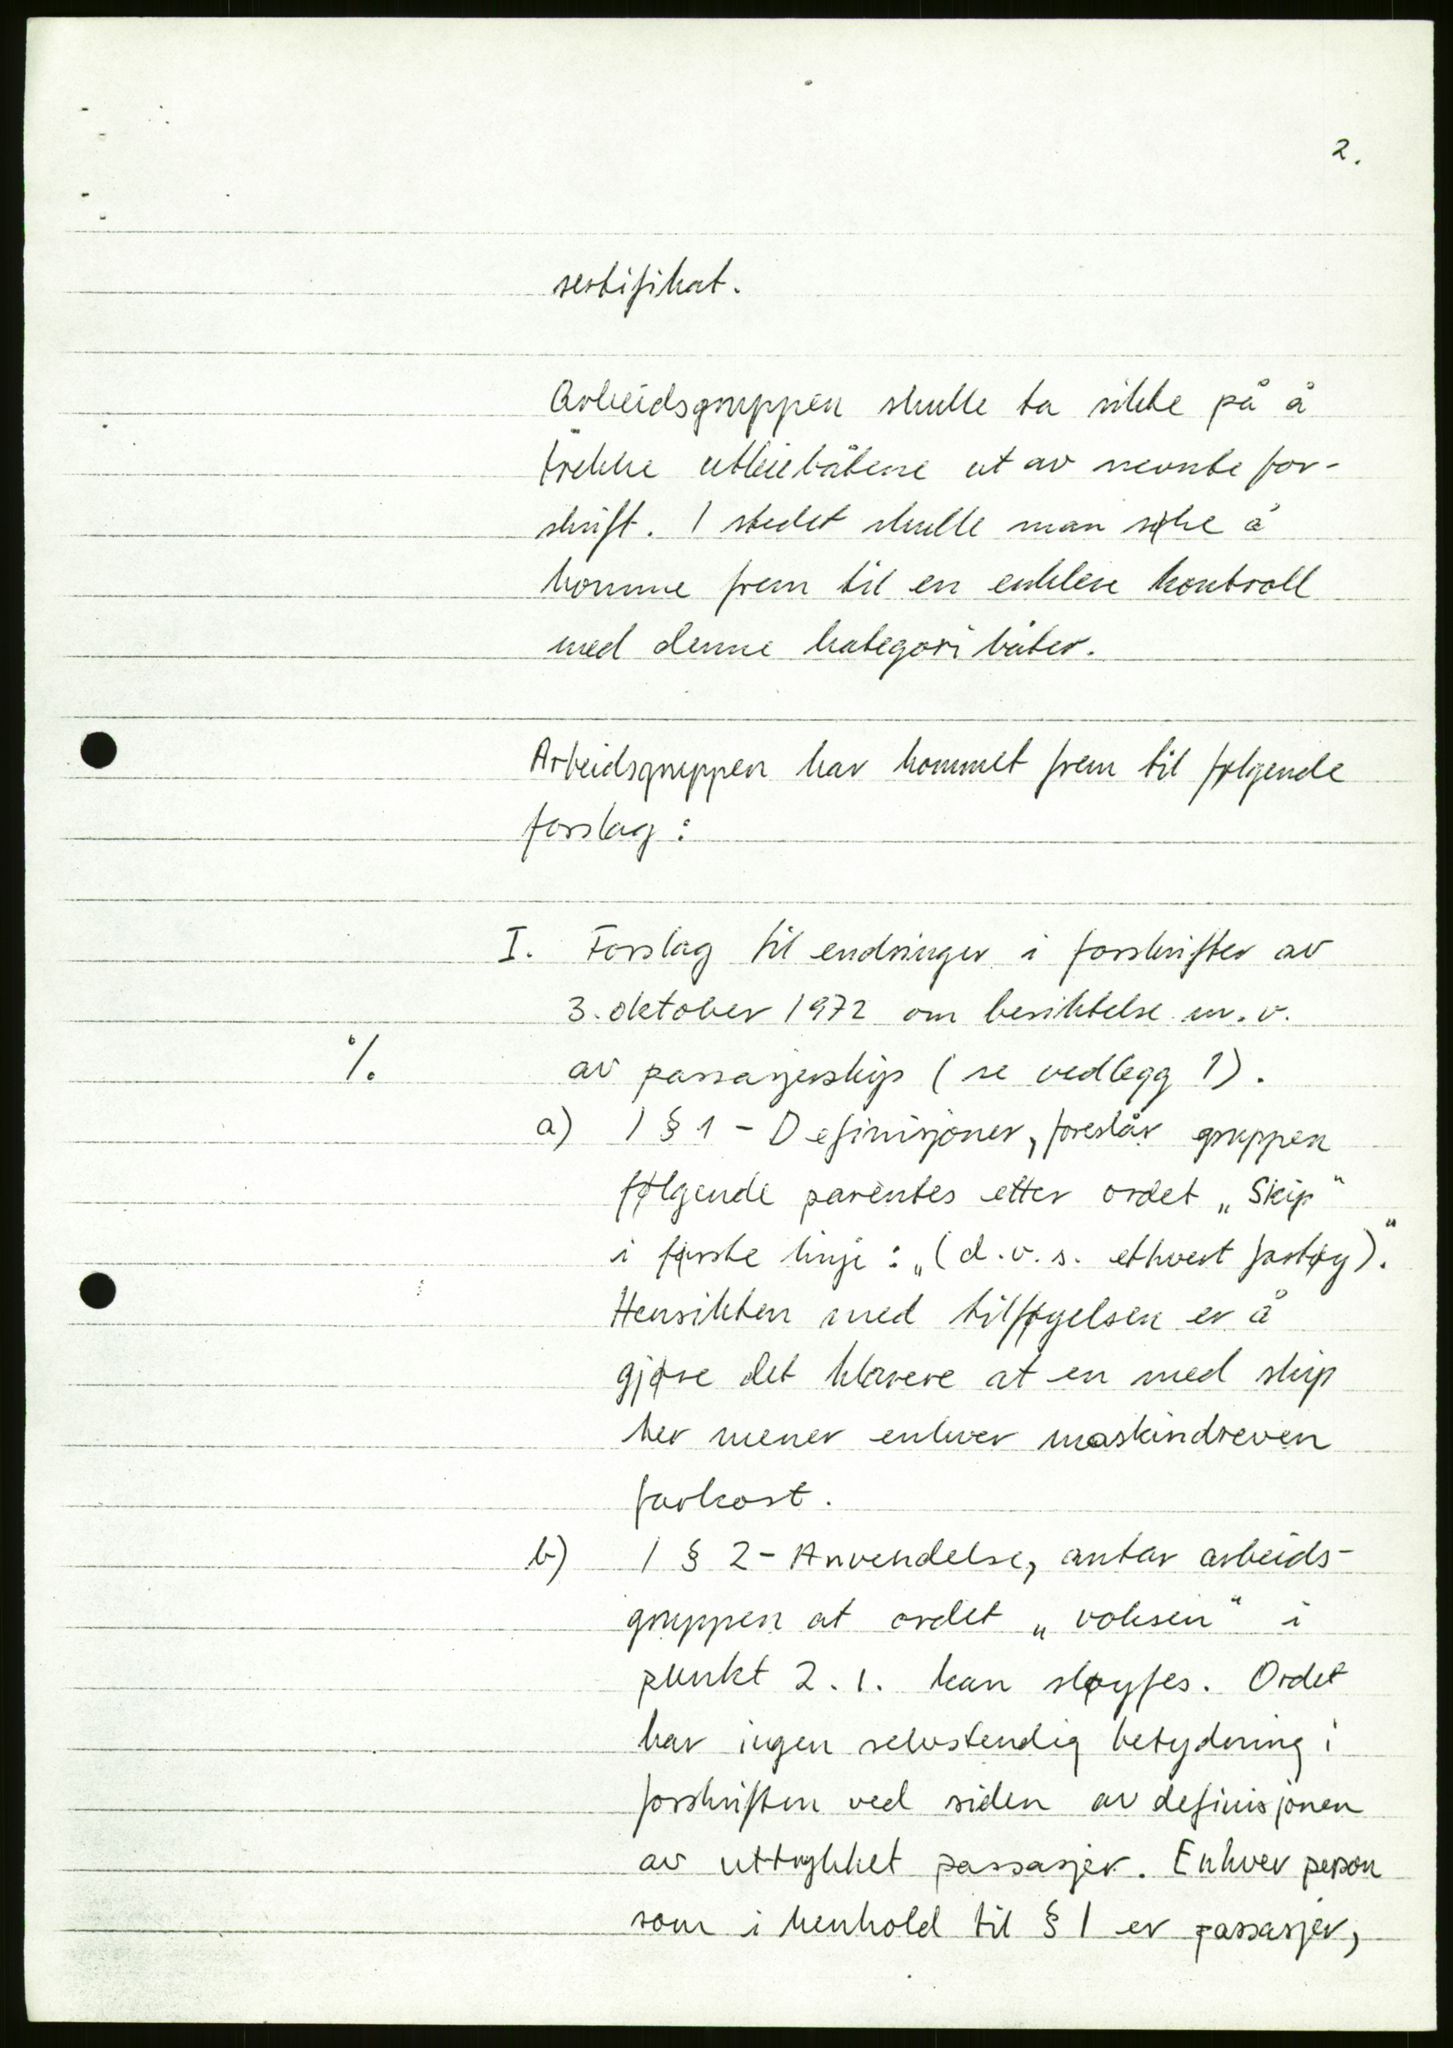 2.
sertifikat.
Arbeidsgruppen skulle ta sikte på å
trekke utleiebåtene ut av nevnte for-
skrift. I stedet skulle man søke å
komme frem til en enklere kontroll
med denne kategori båter.
Arbeidsgruppen har kommet frem til følgende
forslag:
I. Forslag til endringer i forskrifter av
3. oktober 1972 om besiktelse m.v.
%. av passasjerskip (se vedlegg 1).
a) I § 1 - Definisjoner, foreslår gruppen
følgende parentes etter ordet „Skip"
i første linje: „(d.v.s. ethvert fartøy)."
Hensikten med tilføyelsen er å
gjøre det klarere at en med skip
her mener enhver maskindreven
farkost.
b) I § 2 - Anvendelse, antar arbeids-
gruppen at ordet „voksen" i
punkt 2.1. kan sløyfes. Ordet
har ingen selvstendig betydning i
forskriften ved siden av definisjonen
av uttrykket passasjer. Enhver person
som i henhold til § 1 er passasjer,